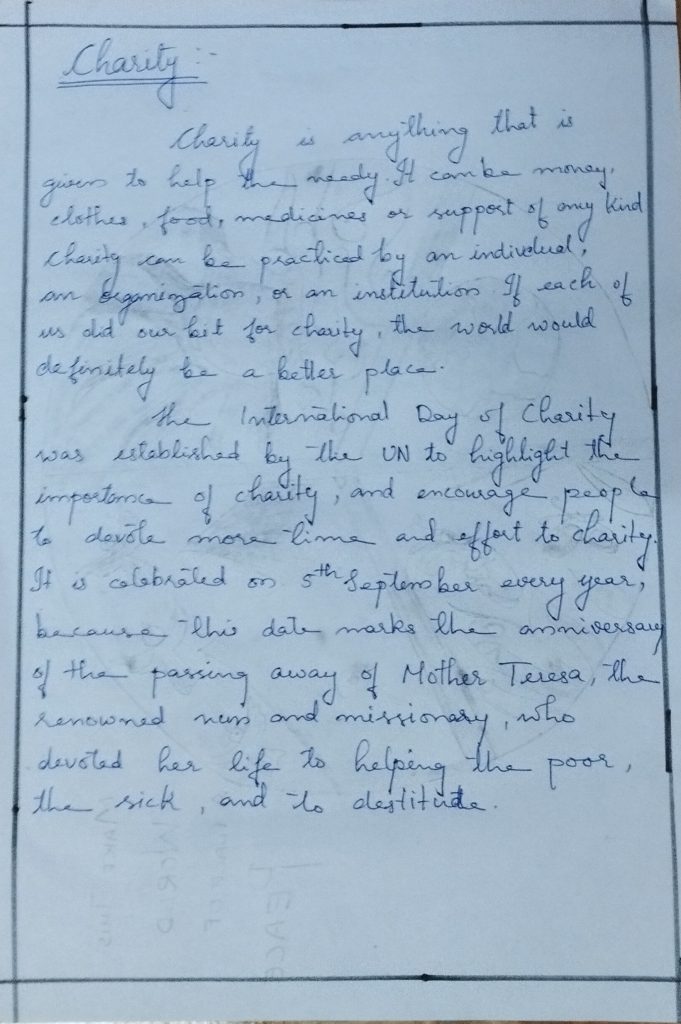 Charity :-
Charity is anything that is
given to help the needy. It can be money,
clothes, food, medicines or support of any kind
Charity can be practiced by an individual,
an organization, or an institution. If each of
us did our bit for charity, the world would
definitely be a better place.
The International Day of Charity
was established by the UN to highlight the
importance of charity, and encourage people
to devote more time and effort to charity.
It is celebrated on 5th September every year,
because this date marks the anniversary
of the passing away of Mother Teresa, the
renowned nun and missionary, who
devoted her life to helping the poor,
the sick, and to destitute.
MAKE THIS
WORLD
PEACE